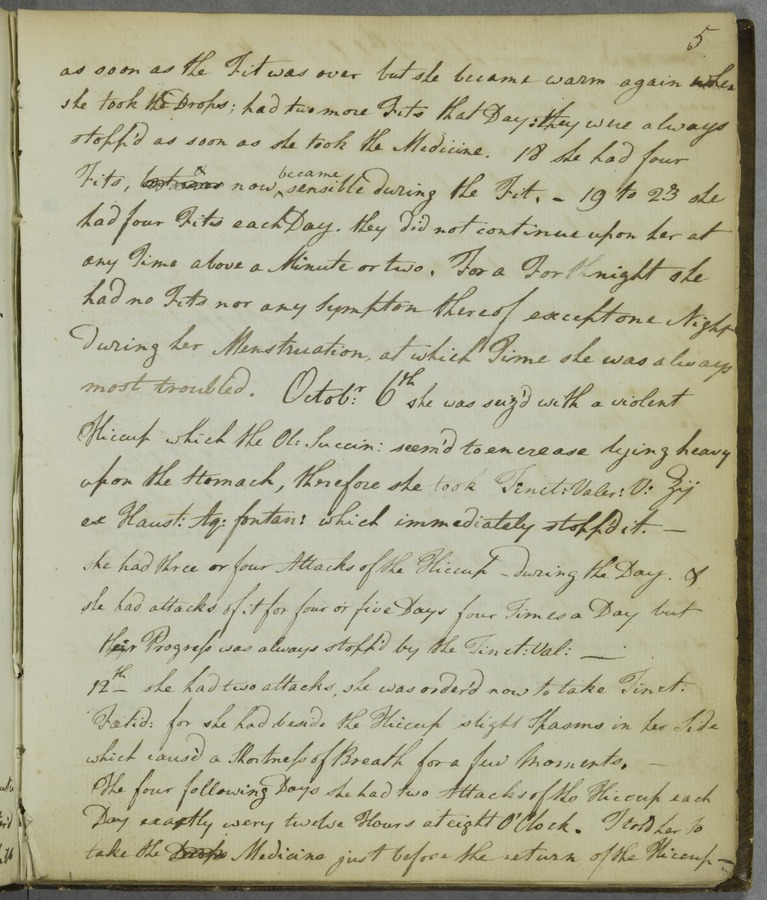 5
as soon as the Fit was over but she became warm again when
she took the Drops; had two more Fits that Day: they were always
stopp'd as soon as she took the Medicine. 18 she had four
Fits, now became sensible during the Fit. - 19 to 23 she
had four Fits each Day. they did not continue upon her at
any Time above a Minute or two. For a Forthnight she
had no Fits nor any Symptom thereof except one Night
During her Menstruation, at which Time she was always
most troubled. Octobr: 6th she was seiz'd with a violent
Hiccup which the Ol: Succin: seem'd to encrease lying heavy
upon the Stomach, therefore she took Tinct: Valer: V: ʒij
ex Haust: Aq: fontan: which immediately stopp'd it. —
she had three or four Attacks of the Hiccup - during the Day. &
she had attacks of it for four or five Days four Times a Day but
their Progress was always stopp'd by the Tinct: Val: —
12th she had two attacks, she was order'd now to take Tinct:
Fœtid: for she had beside the Hiccup slight Spasms in her Side
which caus'd a Shortness of Breath for a few Moments. —
The four following Days she had two Attacks of the Hiccup each
Day exactly wery twelve Hours at eight O'Clock. I told her to
take the Drops Medicine just before the return of the Hiccup —